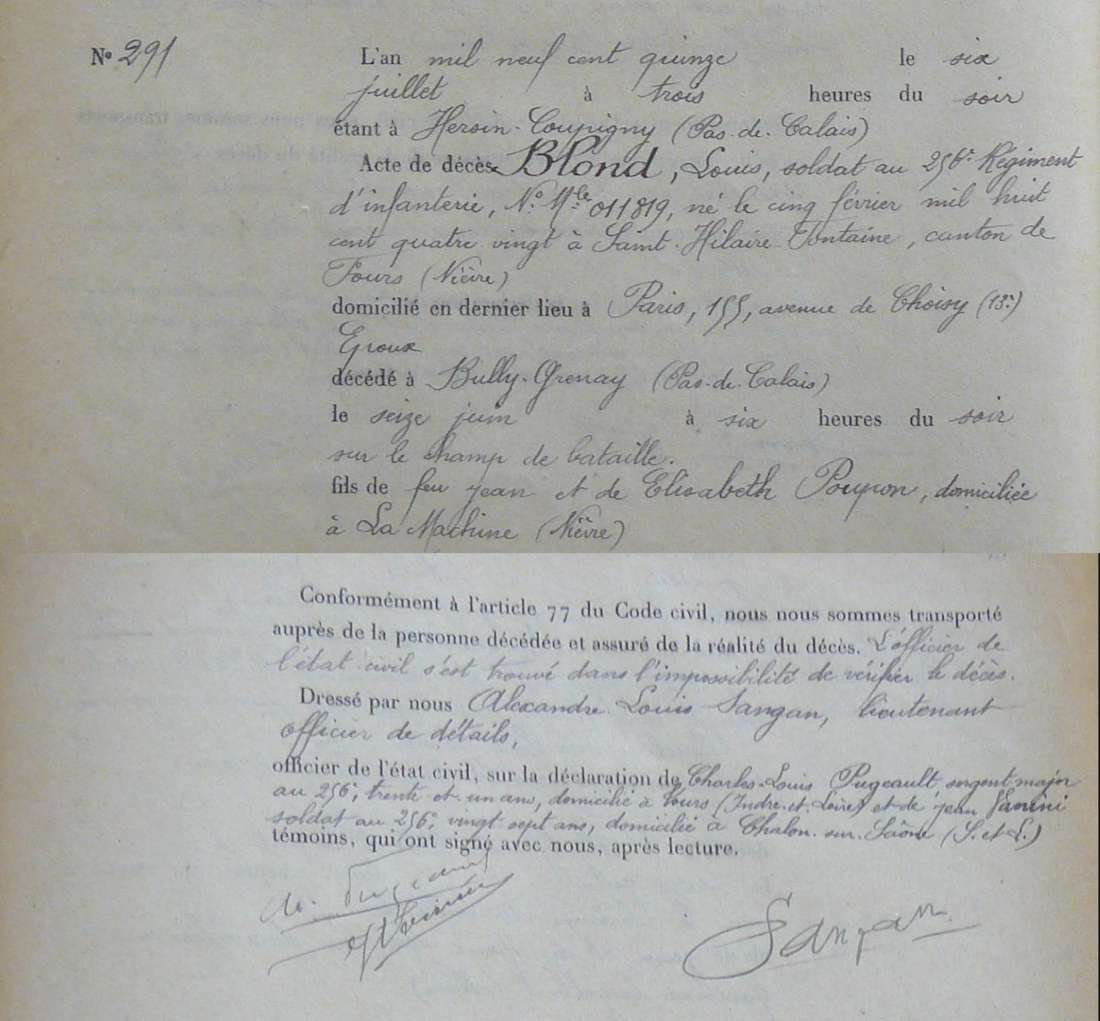 N° 291
L'an mil neuf cent quinze le six
juillet à trois heures du soir
étant à Hersin-Coupigny (Pas-de-Calais)
Acte de décès Blond, Louis, soldat au 256e Régiment
d'infanterie, N° Mle 011819, né le cinq février mil huit
cent quatre vingt à Saint-Hilaire-Fontaine, canton de
Fours (Nièvre)
domicilié en dernier lieu à Paris, 155, avenue de Choisy (13e)
décédé à Bully-Grenay (Pas-de-Calais)
le seize juin à six heures du soir
sur le champ de bataille.
fils de feu jean et de Elisabeth Poupon, domiciliée
à La Machine (Nièvre)
Conformément à l'article 77 du Code civil, nous nous sommes transporté
auprès de la personne décédée et assuré de la réalité du décès. L'officier de
l'état civil s'est trouvé dans l'impossibilité de vérifier le décès.
Dressé par nous Alexandre Louis Sangan, lieutenant
officier de détails,
officier de l'état civil, sur la déclaration de Charles-Louis Pugeault, sergent major
au 256e, trente et un ans, domicilié à Tours (Indre-et-Loire) et de jean Vanini
soldat au 256e, vingt sept ans, domicilié à Chalon-sur-Saône (S. et L.)
témoins, qui ont signé avec nous, après lecture.
Sangan